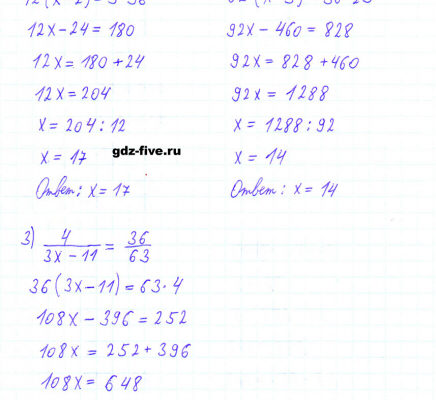 12x - 24 = 180
12x = 180 + 24
12x = 204
x = 204 : 12
x = 17
Ответ: x = 17
92x - 460 = 828
92x = 828 + 460
92x = 1288
x = 1288 : 92
x = 14
Ответ: x = 14
gdz-five.ru
3) 4/(3x - 11) = 36/63
36(3x - 11) = 63 · 4
108x - 396 = 252
108x = 252 + 396
108x = 648